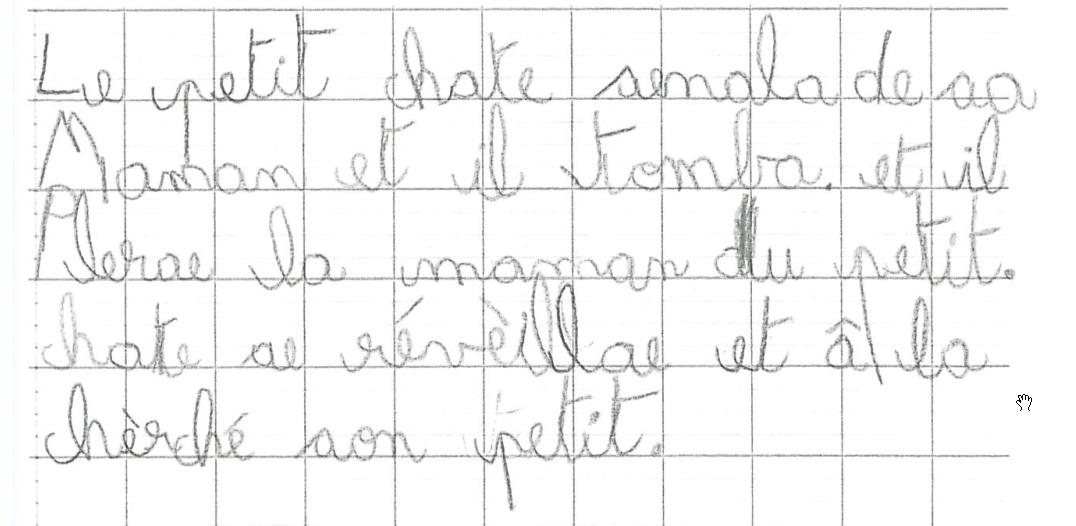 Le petit chate senala de sa
Maman et il tomba. et il
Plerae la maman du petit.
chate se révèillae et â la
chèrché son petit.